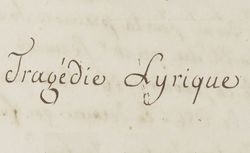 Tragédie Lyrique